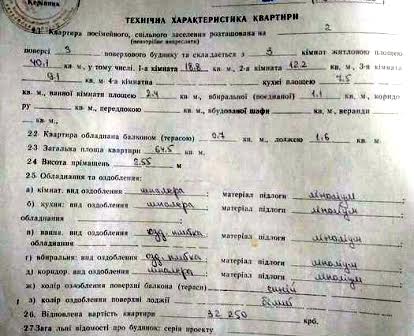 Керівник
ТЕХНІЧНА ХАРАКТЕРИСТИКА КВАРТИРИ
2.1. Квартира посімейного, спільного заселення розташована на 2
(непотрібне викреслити)
поверсі 3 поверхового будинку та складається з 3 кімнат житловою площею
40.1 кв. м, у тому числі. 1-а кімната 18.8 кв. м., 2-а кімната 12.2 кв. м, 3-я кімната
9.1 кв. м 4-а кімната кухні площею 7.5
кв. м., ванної кімнати площею 2.4 кв. м., вбиральної (поєднаної) 1.1 кв. м, коридо
ру кв. м., передпокою кв. м., вбудованої шафи кв. м., веранди
кв. м.,
2.2 Квартира обладнана балконом (терасою) 0.7 кв. м., лоджею 1.6 кв. м.
2.3 Загальна площа квартири 64.5 кв. м.
2.4 Висота приміщень 2.55 м
2.5. Обладнання та оздоблення:
а) кімнат: вид оздоблення шпалера; матеріал підлоги ліноліум
б) кухни: вид оздоблення шпалера; матеріал підлоги ліноліум
обладнання
в) ванни. вид оздоблення матеріал підлоги ліноліум
обладнання
г) вбиральні: вид оздоблення матеріал підлоги ліноліум
д) коридор. вид оздоблення шпалера; матеріал підлоги ліноліум
ж) колір оздоблення поверхні балкона (тераси) синій
з) колір оздоблення поверхні лоджії білий
2.6. Відновлена вартість квартири 32 250 крб.
2.7. Загальні відомості про будинок: серія проекту